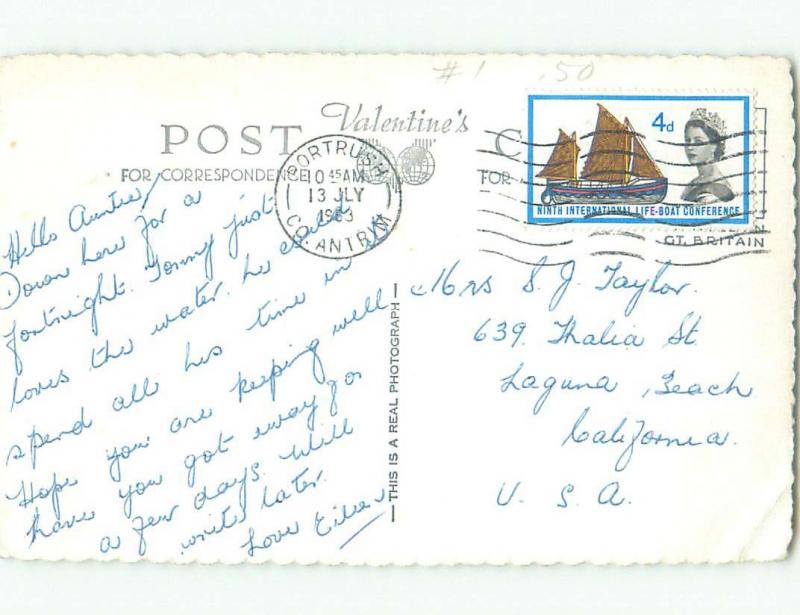 # 1 .50
POST C
Valentine's
FOR CORRESPONDENCE FOR
PORTRUSH
10 45 AM
13 JLY
1963
CO. ANTRIM
4d
NINTH INTERNATIONAL LIFE-BOAT CONFERENCE
GT. BRITAIN
Hello Auntie,
Down here for a
fortnight. Tommy just
loves the water. he could
spend all his time in it
Hope you are keeping well
have you got away for
a few days. Will
write later.
Love Eileen
— THIS IS A REAL PHOTOGRAPH —
Mrs S. J. Taylor.
639. Thalia St.
Laguna, Beach
California.
U. S. A.